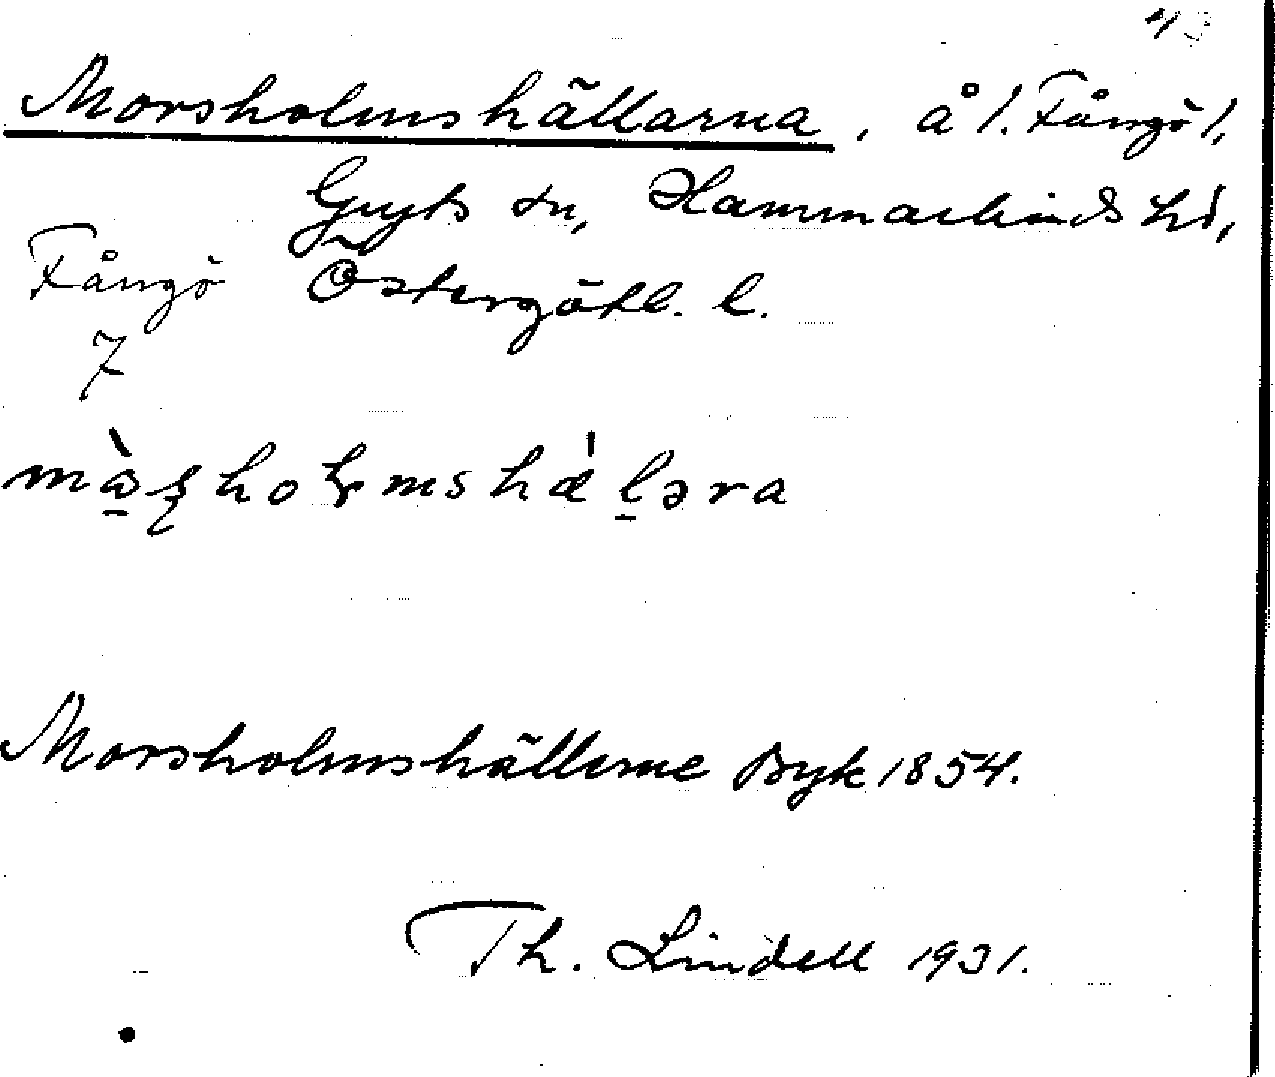 Morsholmshällarna, å l. Fångö l,
Gryts sn, Hammarkinds hd,
Fångö Östergötl. l.
7
Morsholmshällerne Byk 1854.
Th. Lindell 1931.